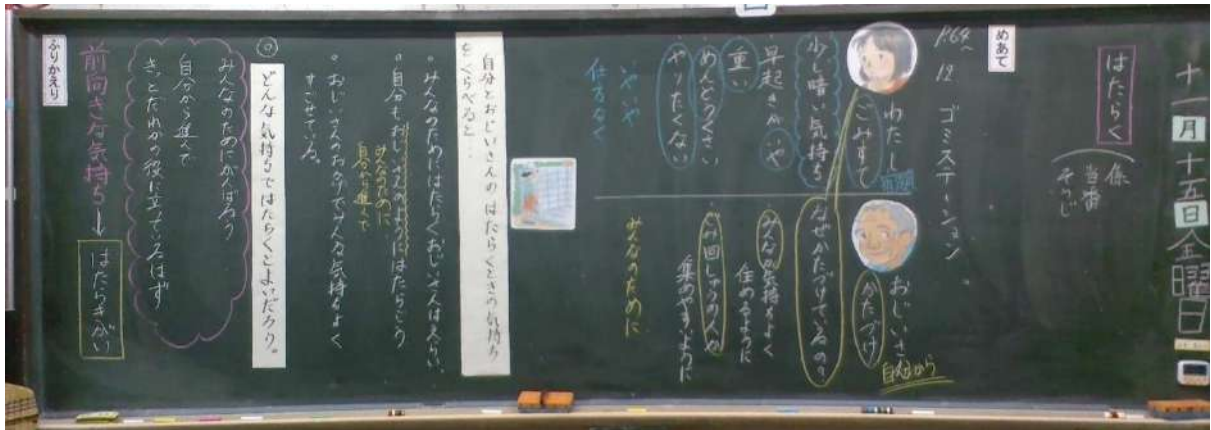 十一月十五日金曜日
はたらく
係
当番
そうじ
めあて
P.64〜
12. ゴミステーション
わたし
ごみすて
少し暗い気持ち
早起きがいや
重い
めんどうくさい
やりたくない
いやいや
仕方なく
おじいさん
かたづけ
自分から
なぜかたづけているの?
みんなが気持ちよく
住めるように
ごみ回しゅうの人が
集めやすいように
みんなのために
自分とおじいさんのはたらくときの気持ち
をくらべると…
・みんなのためにはたらくおじいさんはえらい。
・自分もおじいさんのようにはたらこう
みんなのために
自分から進んで
・おじいさんのおかげでみんな気持ちよく
すごせている。
◎
どんな気持ちではたらくとよいだろう。
みんなのためにがんばろう
自分から進んで
きっとだれかの役に立っているはず
前向きな気持ち→はたらきがい
ふりかえり